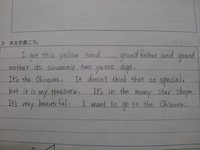 2 本文を書こう。
I got this yellow sand grandfather and grand
mother as souvenir two years ago.
It's the Okinawa. It doesn't think that so special,
but it is my treasure. It's in the many star shape.
It's very beautiful. I want to go to the Okinawa.